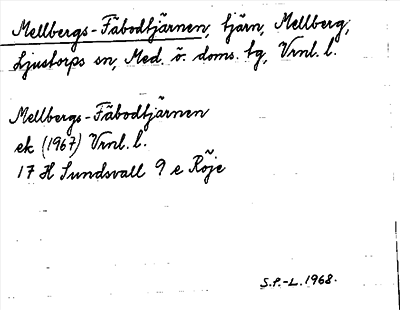 Mellbergs-Fäbodtjärnen, tjärn, Mellberg,
Ljustorps sn, Med. ö. doms. tg, Vrnl. l.
Mellbergs-Fäbodtjärnen
ek (1967) Vrnl. l.
17 H Sundsvall 9 e Röje
S.P.-L. 1968.